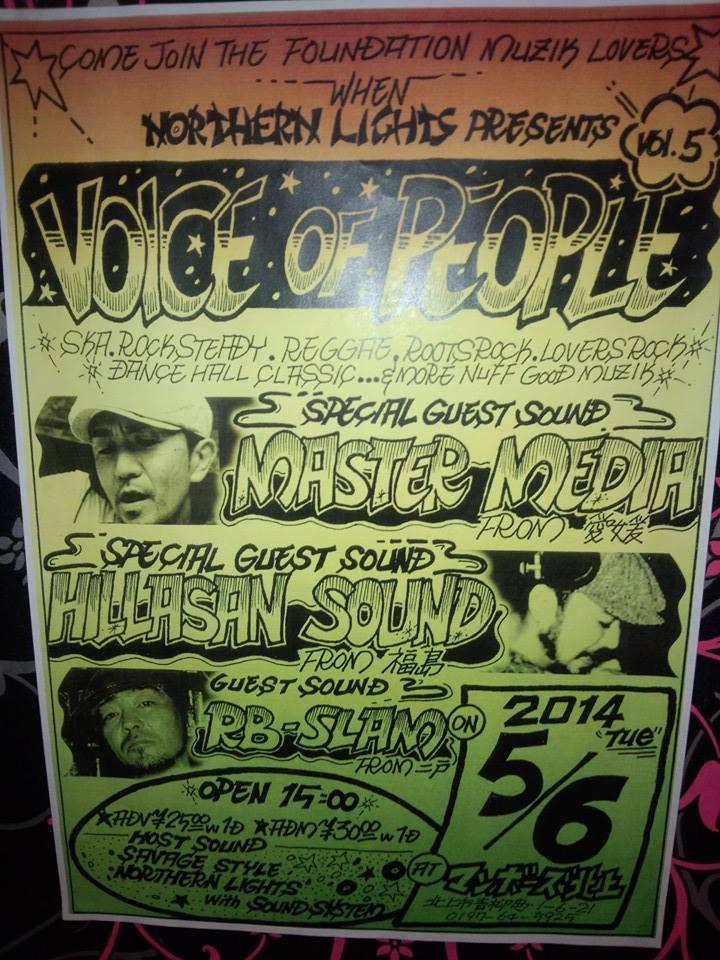 COME JOIN THE FOUNDATION MUZIK LOVERS
WHEN
NORTHERN LIGHTS PRESENTS
VOL.5
VOICE OF PEOPLE
SKA.ROCK STEADY.REGGAE.ROOTS ROCK.LOVERS ROCK
DANCE HALL CLASSIC...&MORE NUFF GOOD MUZIK
SPECIAL GUEST SOUND
MASTER MEDIA
FROM 愛媛
SPECIAL GUEST SOUND
HILLASAN SOUND
FROM 福島
GUEST SOUND
RB-SLAM
FROM 二戸
ON
2014
5/6
"TUE"
OPEN 15:00
ADV ¥2500 w1D ADM ¥3000 w1D
HOST SOUND
・SAVAGE STYLE
・NORTHERN LIGHTS
with SOUND SYSTEM
AT
北上市青柳町-1-6-21
0197-64-5925